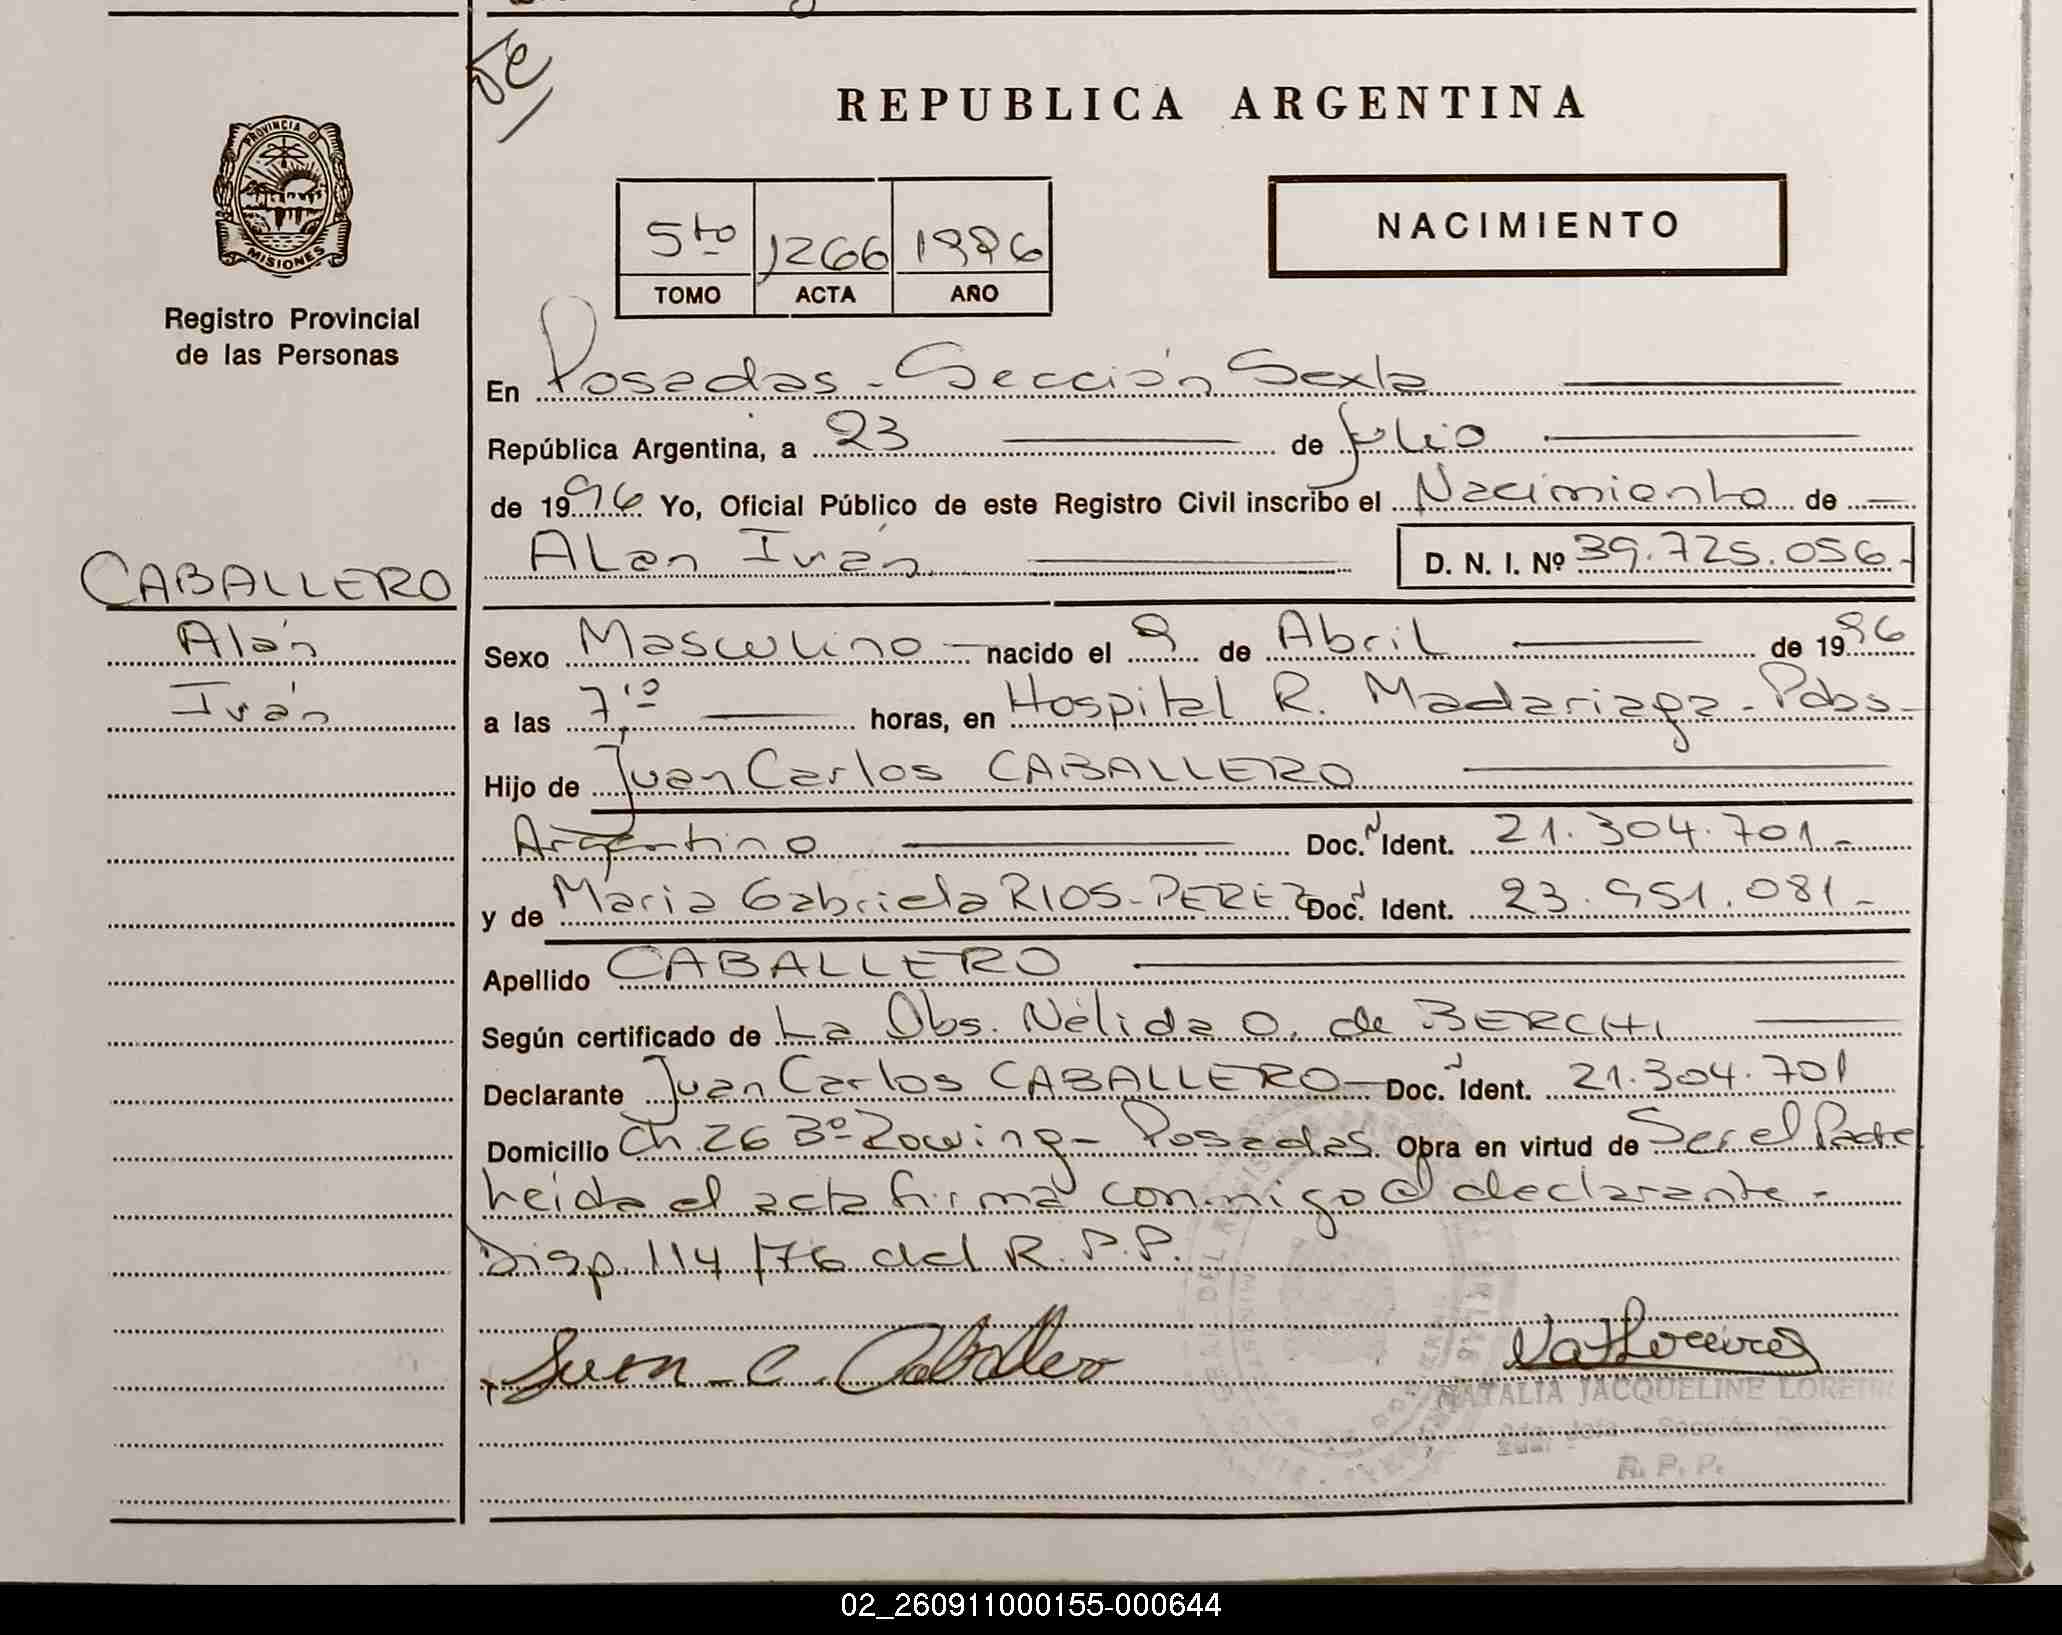 REPUBLICA ARGENTINA
PROVINCIA D
MISIONES
Registro Provincial
de las Personas
NACIMIENTO
5to 1266 1996
TOMO ACTA AÑO
En Posadas - Sección Sexta
República Argentina, a 23 de Julio
de 1996 Yo, Oficial Público de este Registro Civil inscribo el Nacimiento de
Alan Iván D. N. I. Nº 39.725.056.-
CABALLERO
Alán
Iván
Sexo Masculino nacido el 9 de Abril de 1996
a las 7,10 horas, en Hospital R. Madariaga - Pdas-
Hijo de Juan Carlos CABALLERO
Argentino Doc. N Ident. 21.304.701.-
y de Maria Gabriela RIOS-PEREZ Doc. Ident. 23.951.081.-
Apellido CABALLERO
Según certificado de La Obs. Nélida O. de BERCHI
Declarante Juan Carlos CABALLERO Doc. Ident. 21.304.701
Domicilio Ch. 26 Bº Rowing - Posadas Obra en virtud de Ser el Padre
Leida el acta firma conmigo el declarante.-
Disp. 114/76 del R.P.P.
Juan C. Caballero
NATALIA JACQUELINE LOREIR
Sección Sexta
R. P. P.
02_260911000155-000644